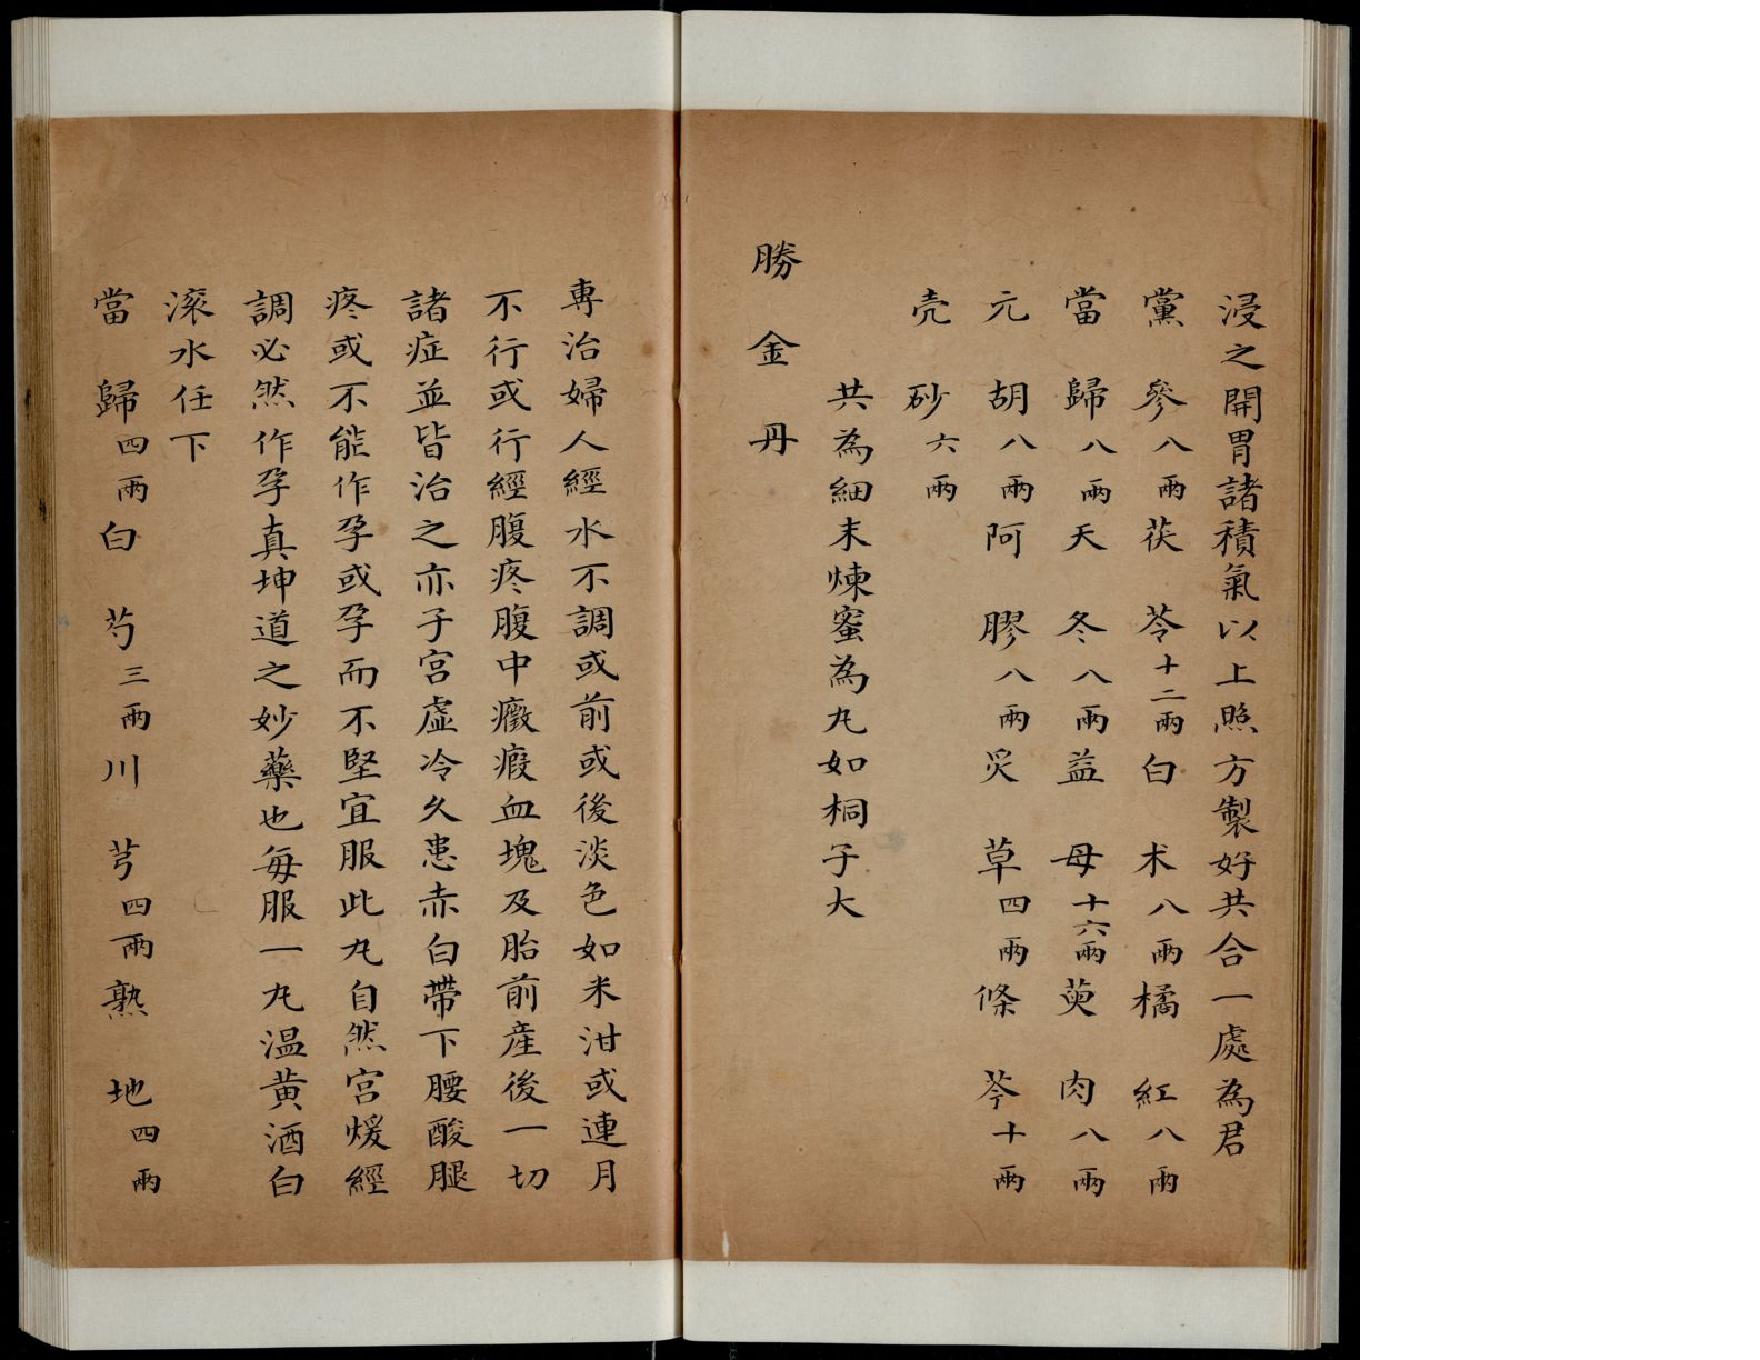 浸之開胃諸積氣以上照方製好共合一處為君
黨參八兩茯苓十二兩白朮八兩橘紅八兩
當歸八兩天冬八兩益母十六兩萸肉八兩
元胡八兩阿膠八兩炙草四兩條芩十兩
壳砂六兩
共為細末煉蜜為丸如桐子大
勝金丹
專治婦人經水不調或前或後淡色如米泔或連月
不行或行經腹疼腹中癥瘕血塊及胎前產後一切
諸症並皆治之亦子宮虛冷久患赤白帶下腰酸腿
疼或不能作孕或孕而不堅宜服此丸自然宮煖經
調必然作孕真坤道之妙藥也每服一丸温黃酒白
滚水任下
當歸四兩白芍三兩川芎四兩熟地四兩